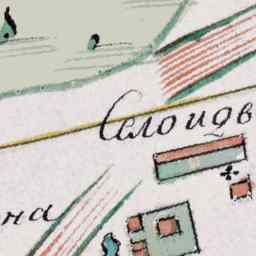 Село идв
на